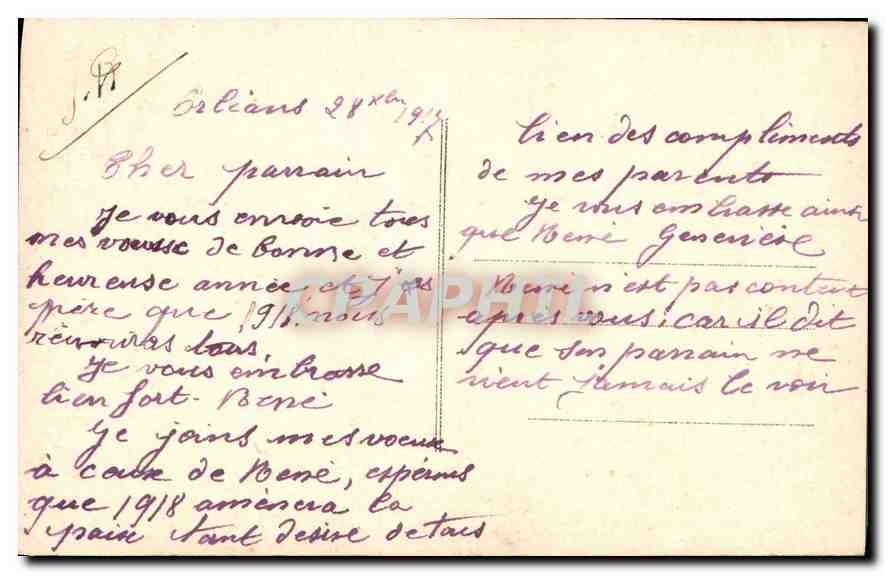 Orléans 28 xbre 1917
Cher parrain
Je vous envoie tous
mes voeuse de bonne et
heureuse année et j'es
père que 1918 nous
réuniras tous.
Je vous embrasse
bien fort - René
Je joins mes voeux
à ceux de René, espérons
que 1918 amènera la
paix tant desire de tous
bien des compliments
de mes parents
Je vous embrasse ainsi
que René Geneviève
René n'est pas content
après vous, car il dit
que son parrain ne
vient jamais le voir
CPAPHIL